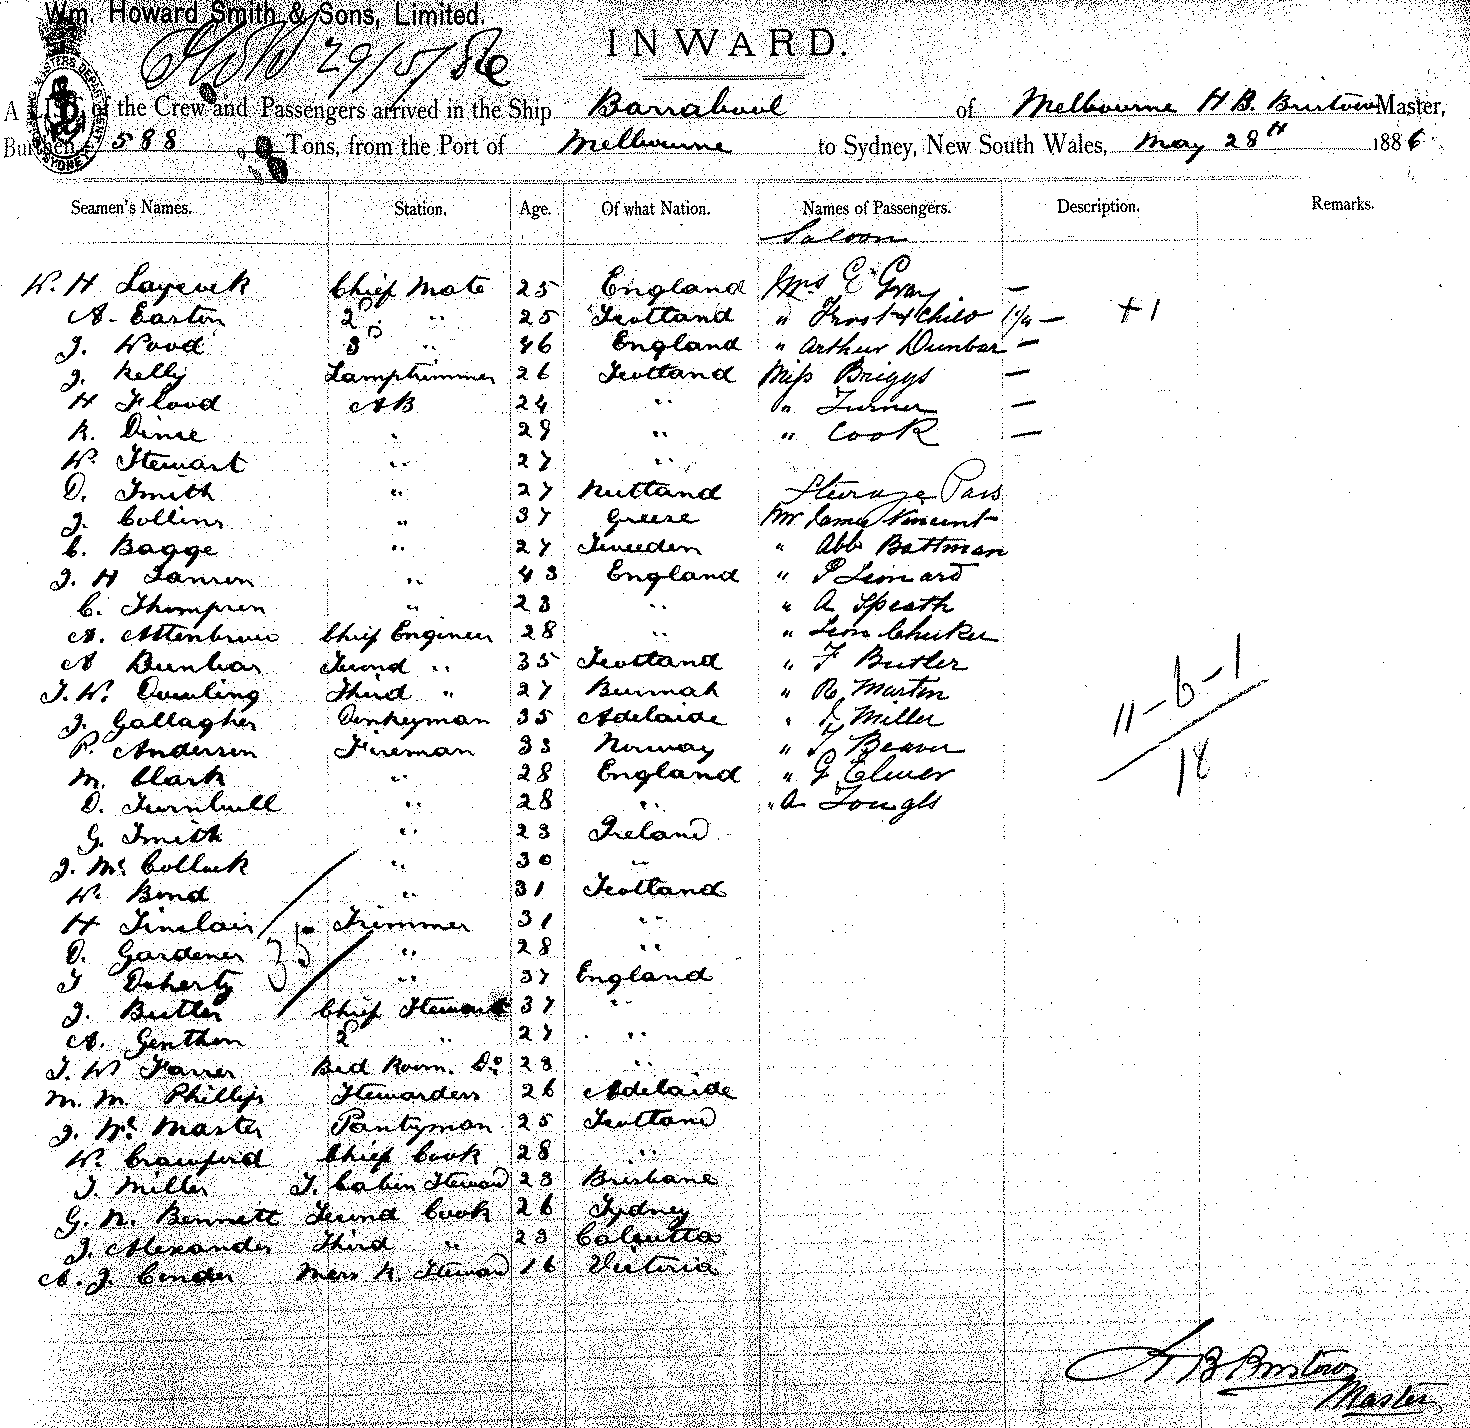 Wm. Howard Smith & Sons, Limited.
29/5/86
INWARD.
A LIST of the Crew and Passengers arrived in the Ship Barrabool of Melbourne H B. Bristow Master,
Burthen 588 Tons, from the Port of Melbourne to Sydney, New South Wales, May 28th 1886
Seamen's Names. Station. Age. Of what Nation. Names of Passengers. Description. Remarks.
Saloon
W. H Laycock Chief Mate 25 England Mrs E Gray —
A. Easton 2D " 25 Scotland " Frost & Child — +1
J. Wood 3D " 46 England " Arthur Dunbar —
J. Kelly Lamptrimmer 26 Scotland Miss Briggs —
H Flood AB 24 " " Turner —
R. Dinse " 29 " " Cook —
W. Stewart " 27 "
D. Smith " 27 Steerage Pass
J. Collins " 37 Greese Mr James Vincent
C. Bagge " 27 Sweeden " Abb Battman
J. H Sanson " 43 England " P Leonard
C. Thompson " 23 " " A Speath
A. Attenbrow Chief Engineer 28 " " Leon
A Dunbar Second " 35 Scotland " F Butler
J. W. Dowling Third " 27 Burmah " R. Martin
J. Gallagher Donkeyman 35 Adelaide " Miller
P. Anderson Fireman 33 Norway " Beaver
M. Clark " 28 England " G
D. Turnbull " 28 " " A
G. Smith " 23 Ireland
J. Mc Collock " 30 "
W. Bond " 31 Scotland
H Sinclair Trimmer 31 "
D. Gardener " 28 "
T Doherty " 37 England
J. Butler Chief Steward 37 "
A. Genthon 2D " 27 "
J. W Farrer Bed Room. Do 28 "
M. M. Phillips Stewardess 26 Adelaide
J. Mc Master Pantyman 25 Scotland
W. Crawford Chief Cook 28 "
J. Miller S. Cabin Steward 23 Brisbane
G. N. Bennett Second Cook 26 Sydney
J. Alexander Third " 23 Calcutta
A. J. Conder Mess R. Steward 16 Victoria
35
11-6-1
18
H B Bristow
Master